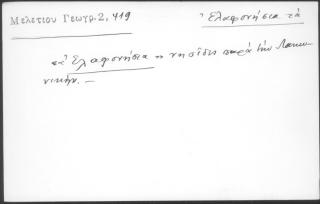 Μελετίου Γεωγρ. 2, 419
Ἐλαφονήσια τὰ
τὰ Ἐλαφονήσια νησίδες παρὰ τὴν Λακω-
νικήν. —